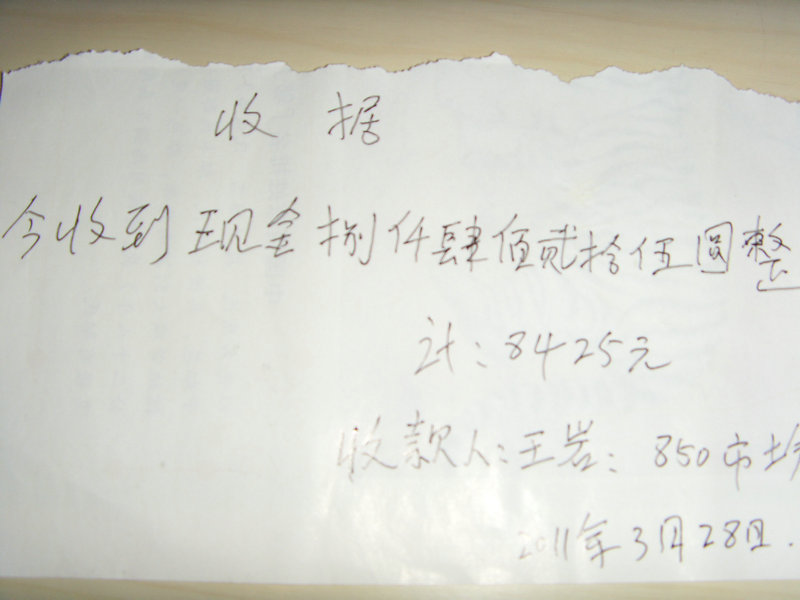 收据
今收到现金捌仟肆佰贰拾伍圆整
计：8425元
收款人：王岩：850市场
2011年3月28日.